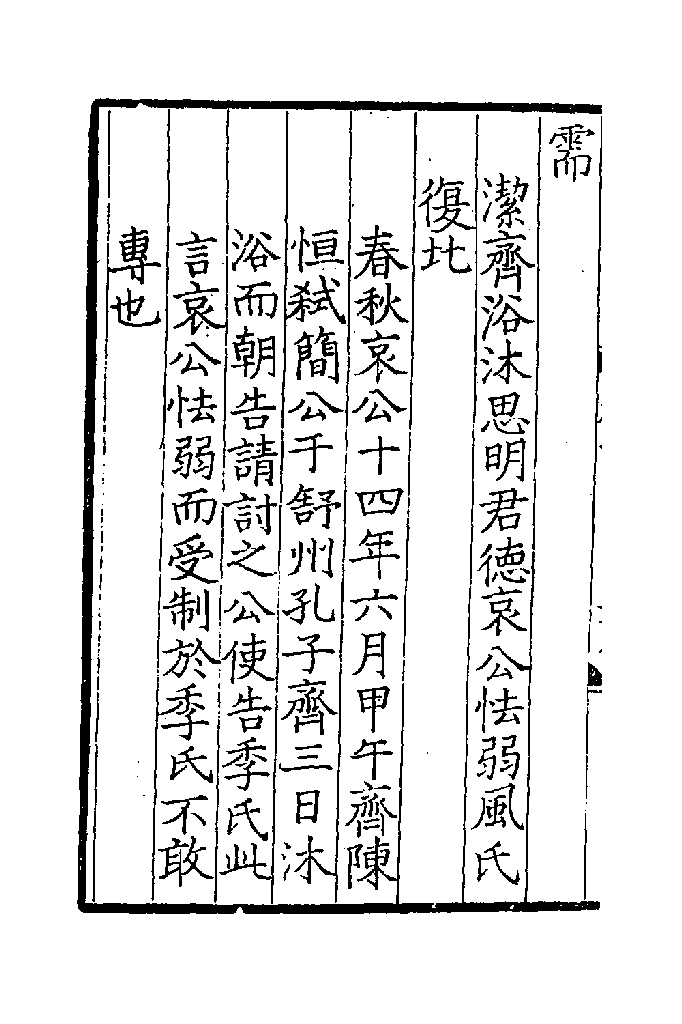 需
潔齊浴沐思明君徳哀公怯弱風氏
復比
春秋哀公十四年六月甲午齊陳
恒弑簡公于舒州孔子齊三日沐
浴而朝告請討之公使告季氏此
言哀公怯弱而受制於季氏不敢
專也